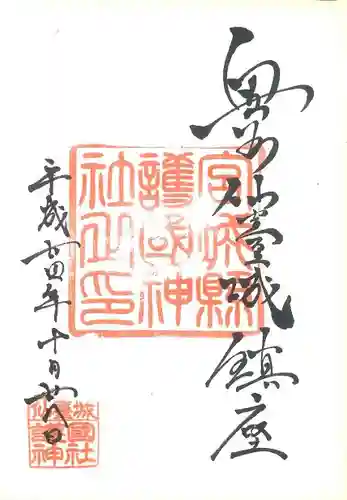 奥州仙臺城鎮座
宮城縣
護国神
社之印
平成廿四年十月廿八日
仙臺城
護國神社